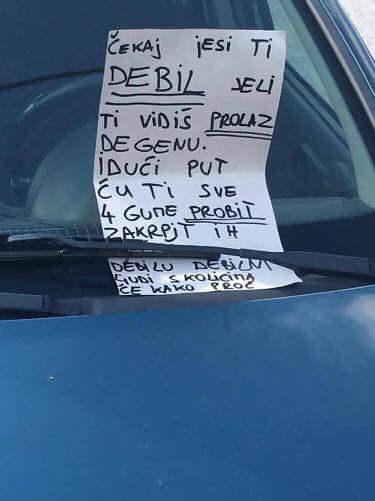 ČEKAJ JESI TI
DEBIL JELI
TI VIDIŠ PROLAZ
DEGENU.
IDUĆI PUT
ĆU TI SVE
4 GUME PROBIT
ZAKRPIT IH
DEBILU DEBILNI
LJUDI S KOLICIMA
ĆE KAKO PROĆ